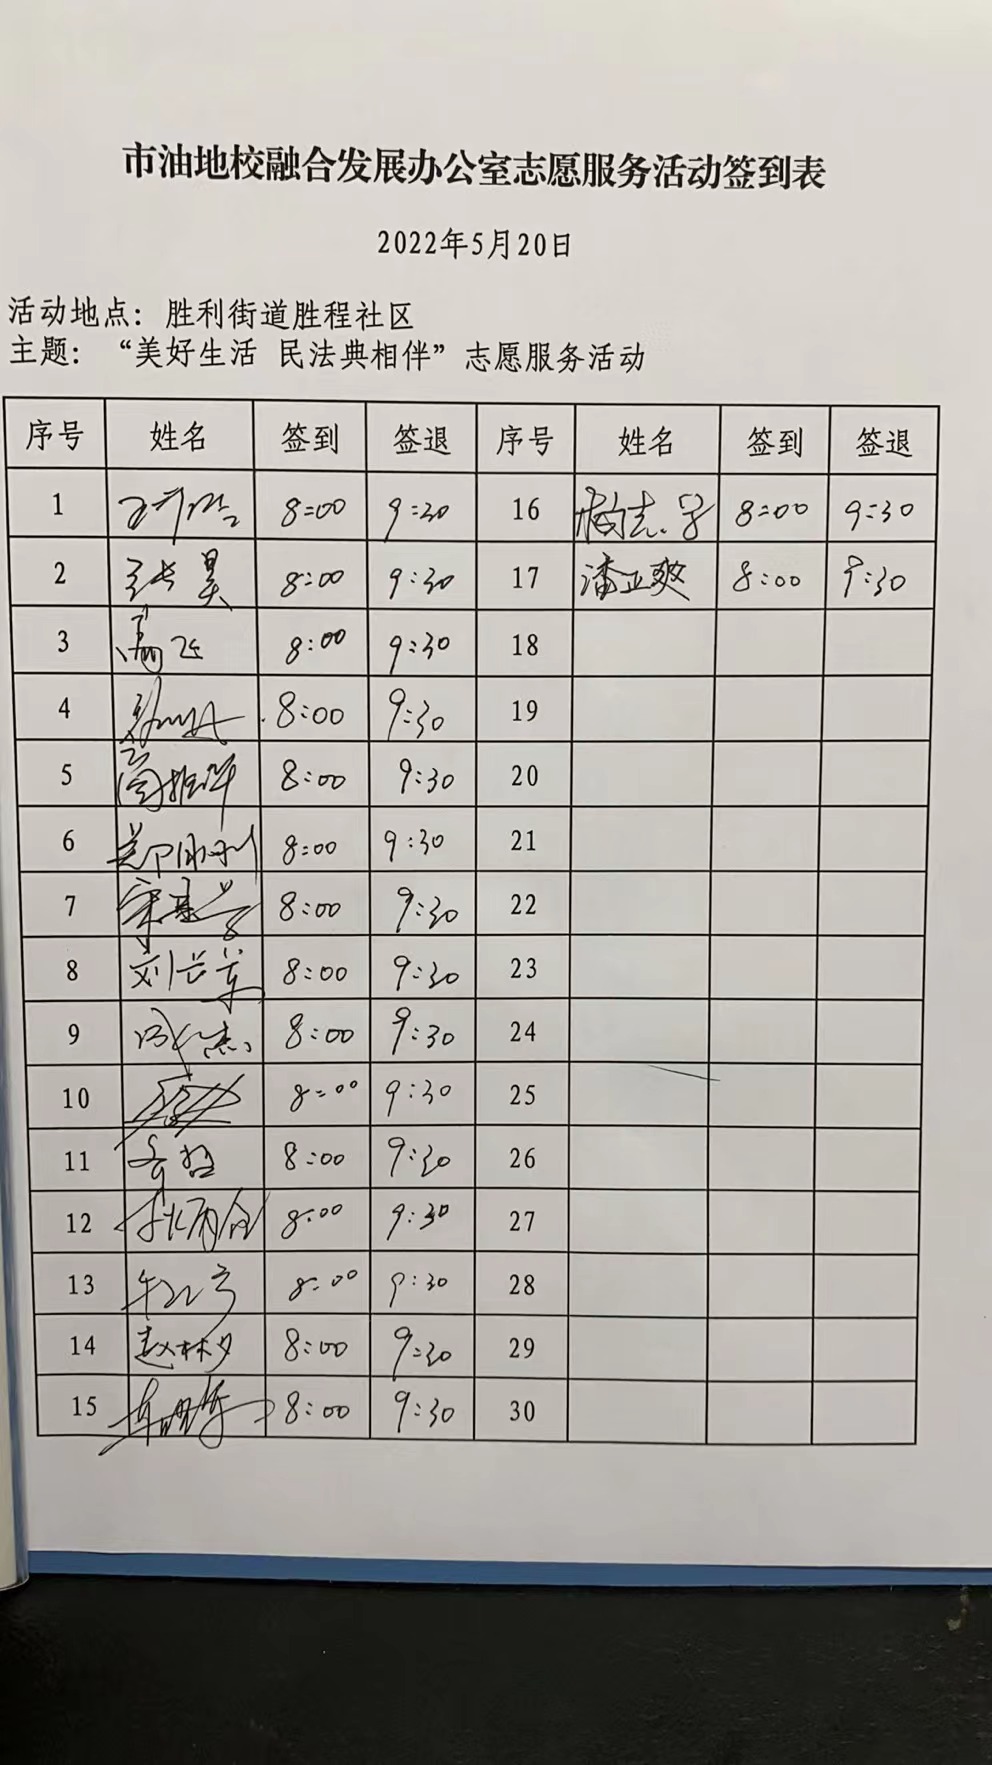 市油地校融合发展办公室志愿服务活动签到表
2022年5月20日
活动地点：胜利街道胜程社区
主题：“美好生活 民法典相伴”志愿服务活动
序号 姓名 签到 签退 序号 姓名 签到 签退
1 8:00 9:30 16 8:00 9:30
2 8:00 9:30 17 潘正爽 8:00 9:30
3 8:00 9:30 18
4 8:00 9:30 19
5 8:00 9:30 20
6 郑胜利 8:00 9:30 21
7 8:00 9:30 22
8 刘长军 8:00 9:30 23
9 8:00 9:30 24
10 8:00 9:30 25
11 8:00 9:30 26
12 8:00 9:30 27
13 8:00 9:30 28
14 赵林夕 8:00 9:30 29
15 8:00 9:30 30